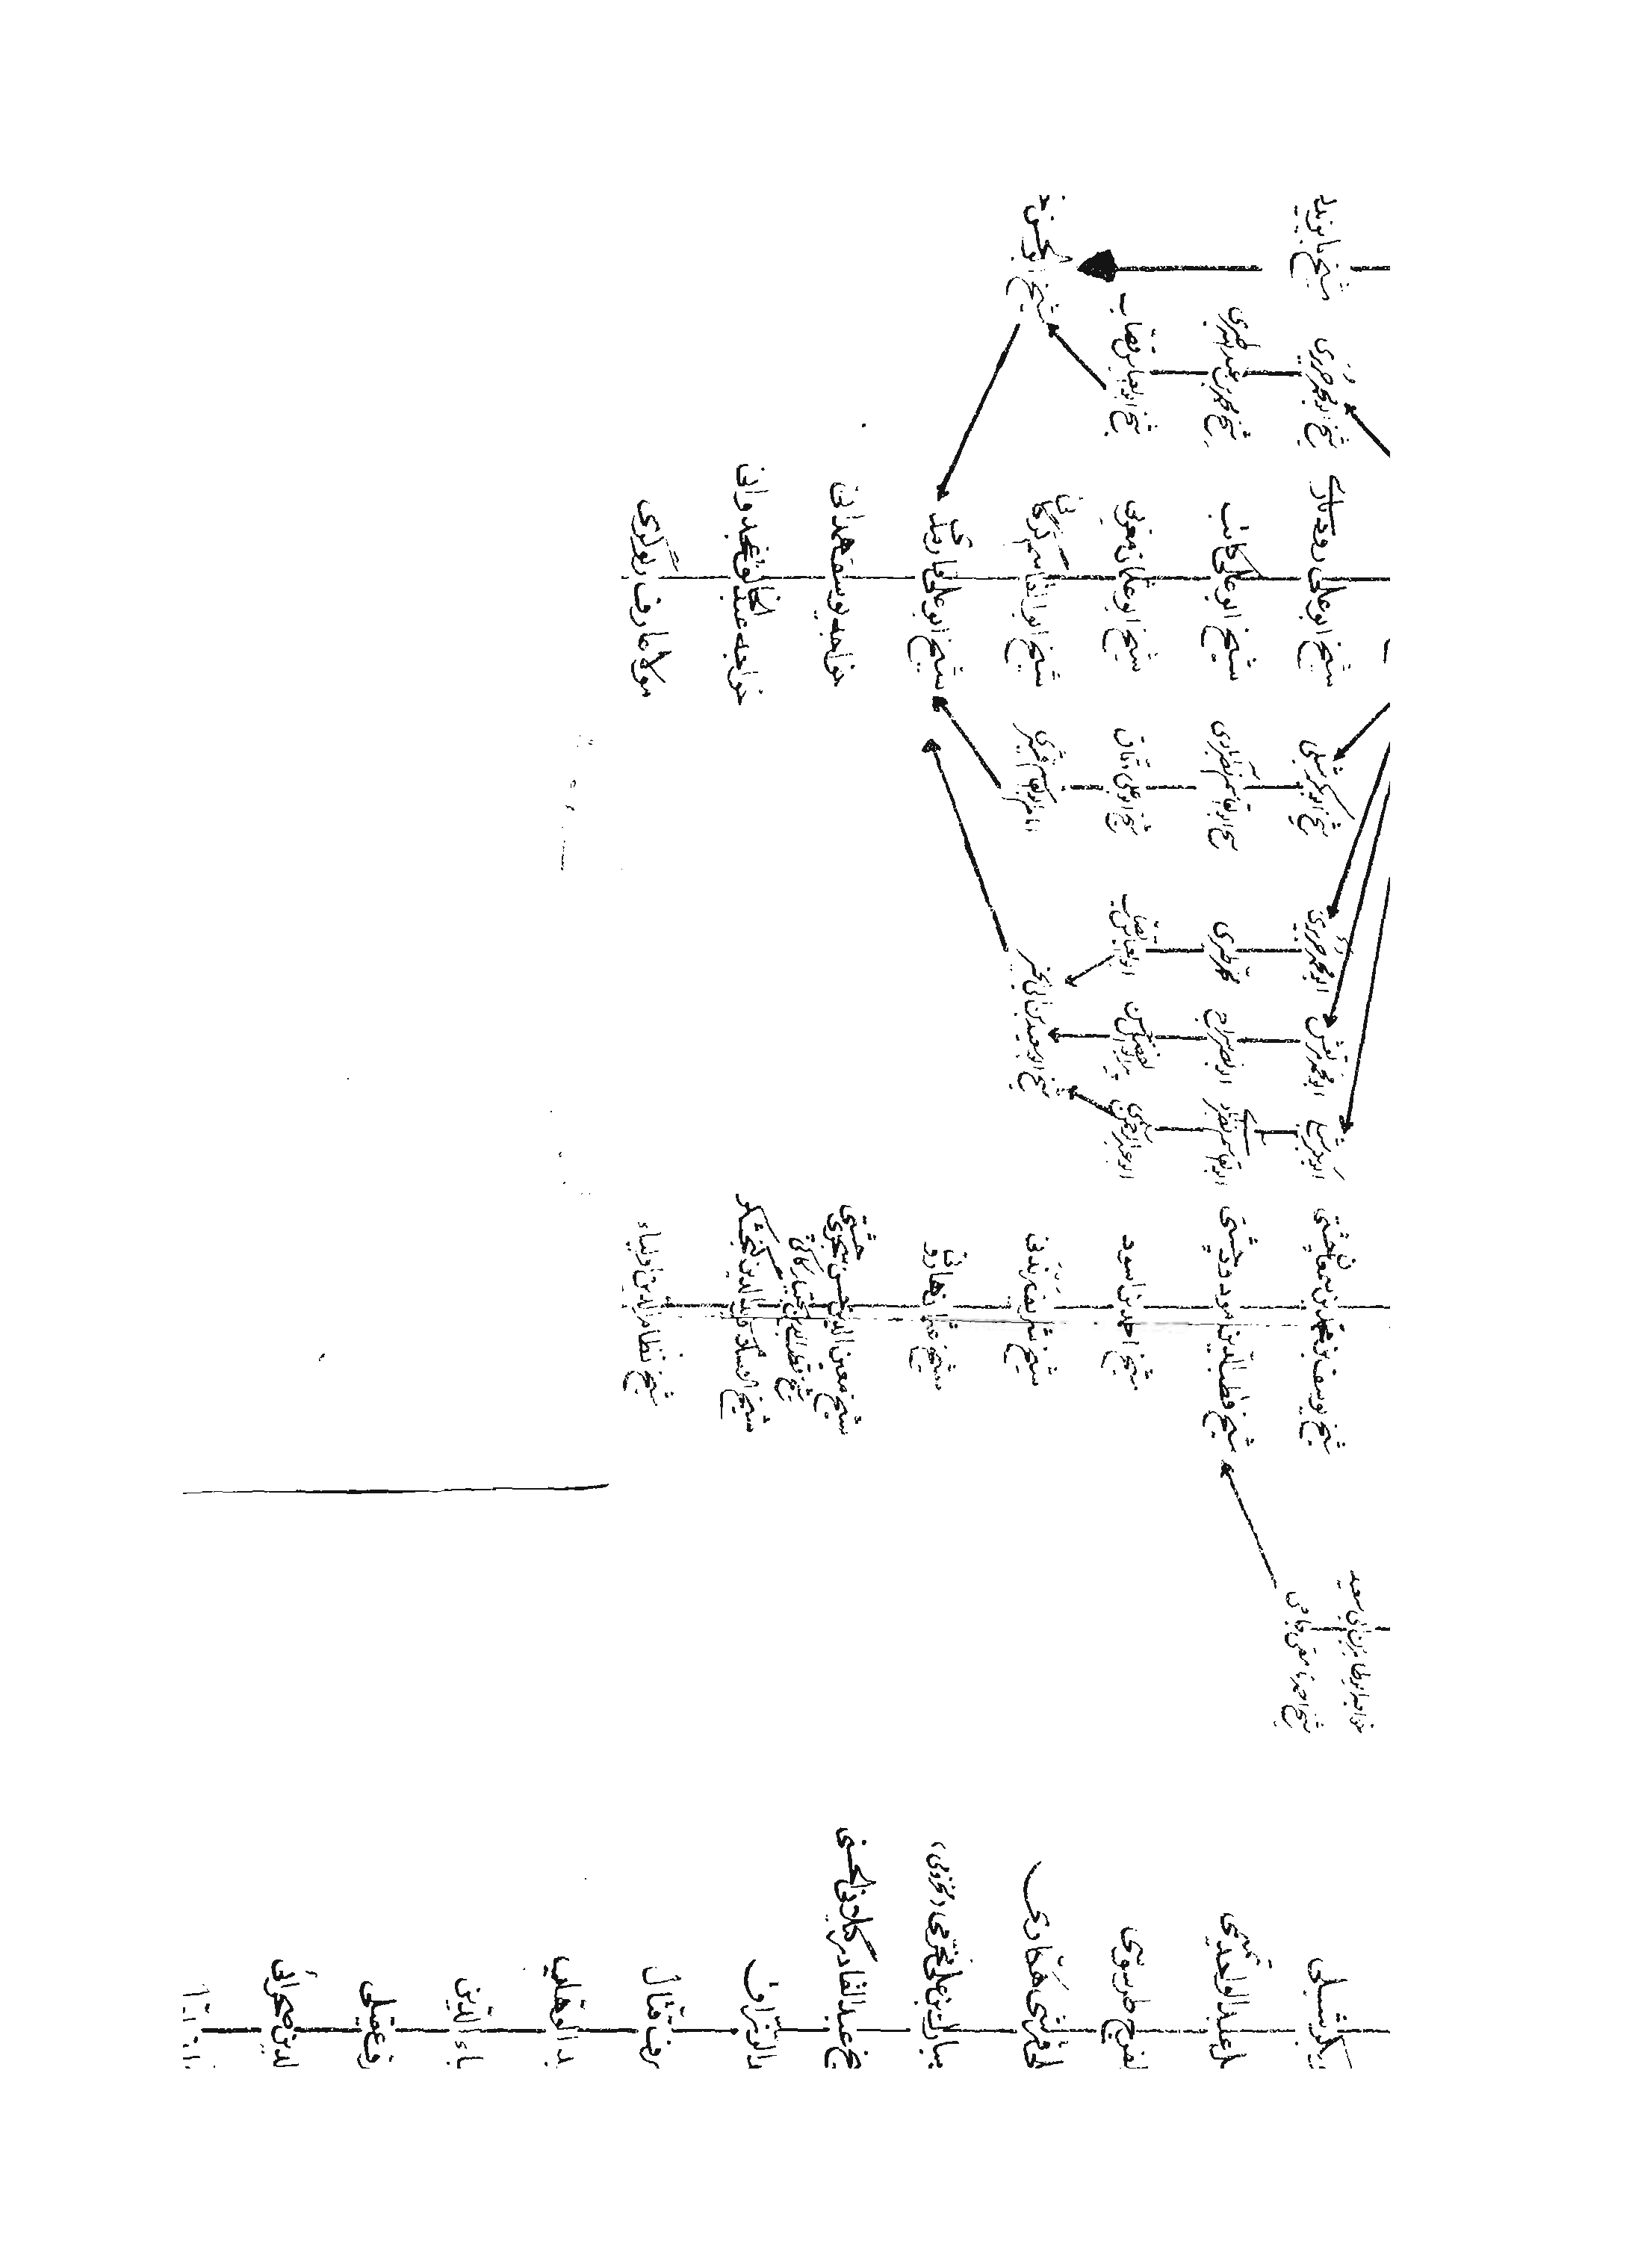 شیخ بایزید
شیخ ابوالحسن
شیخ ابومحمد جریری
شیخ محمد بن عبداللہ طبری
شیخ ابوالعباس قصاب
شیخ ابوعلی رودباری
شیخ ابوعلی کاتب
شیخ ابوعثمان مغربی
شیخ ابوالقاسم گرگانی
شیخ ابوعلی فارمدی
خواجہ یوسف ھمدانی
خواجہ عبدالخالق غجدوانی
مولانا عارف ریوگری
شیخ ابوبکر شبلی
شیخ ابوالقاسم نصرآبادی
شیخ ابوعلی دقاق
امام ابوالقاسم قشیری
ابومحمد جریری
محمد طبری
ابوالعباس قصاب
ابومحمد مرتعش
ابونصر سراج
پیر ابوالفضل حسن
شیخ ابوسعید بن ابی الخیر
ابوبکر
ابوالقاسم نصرآباد
ابوعبدالرحمن سلمی
شیخ یوسف بن محمد بن سمعان چشتی
شیخ قطب الدین مودود چشتی
شیخ احمد بن اسود
شیخ شریف زندنی
شیخ عثمان ھارونی
شیخ معین الدین حسن سجزی چشتی
شیخ قطب الدین بختیار کاکی
شیخ الاسلام فرید الدین گنج شکر
شیخ نظام الدین اولیاء
خواجہ ابوطاہر بن ابی سعید
شیخ احمد نامقی جامی
بکر شبلی
عبدالواحد تمیمی
لفرج طرسوسی
قرشی ھکاری
مبارک بن علی مخرمی (مخزومی)
شیخ عبدالقادر گیلانی الحسنی
دالرزاق
رف قتال
بدالوھاب
ہاء الدین
عقیلی
لدین صحرائی